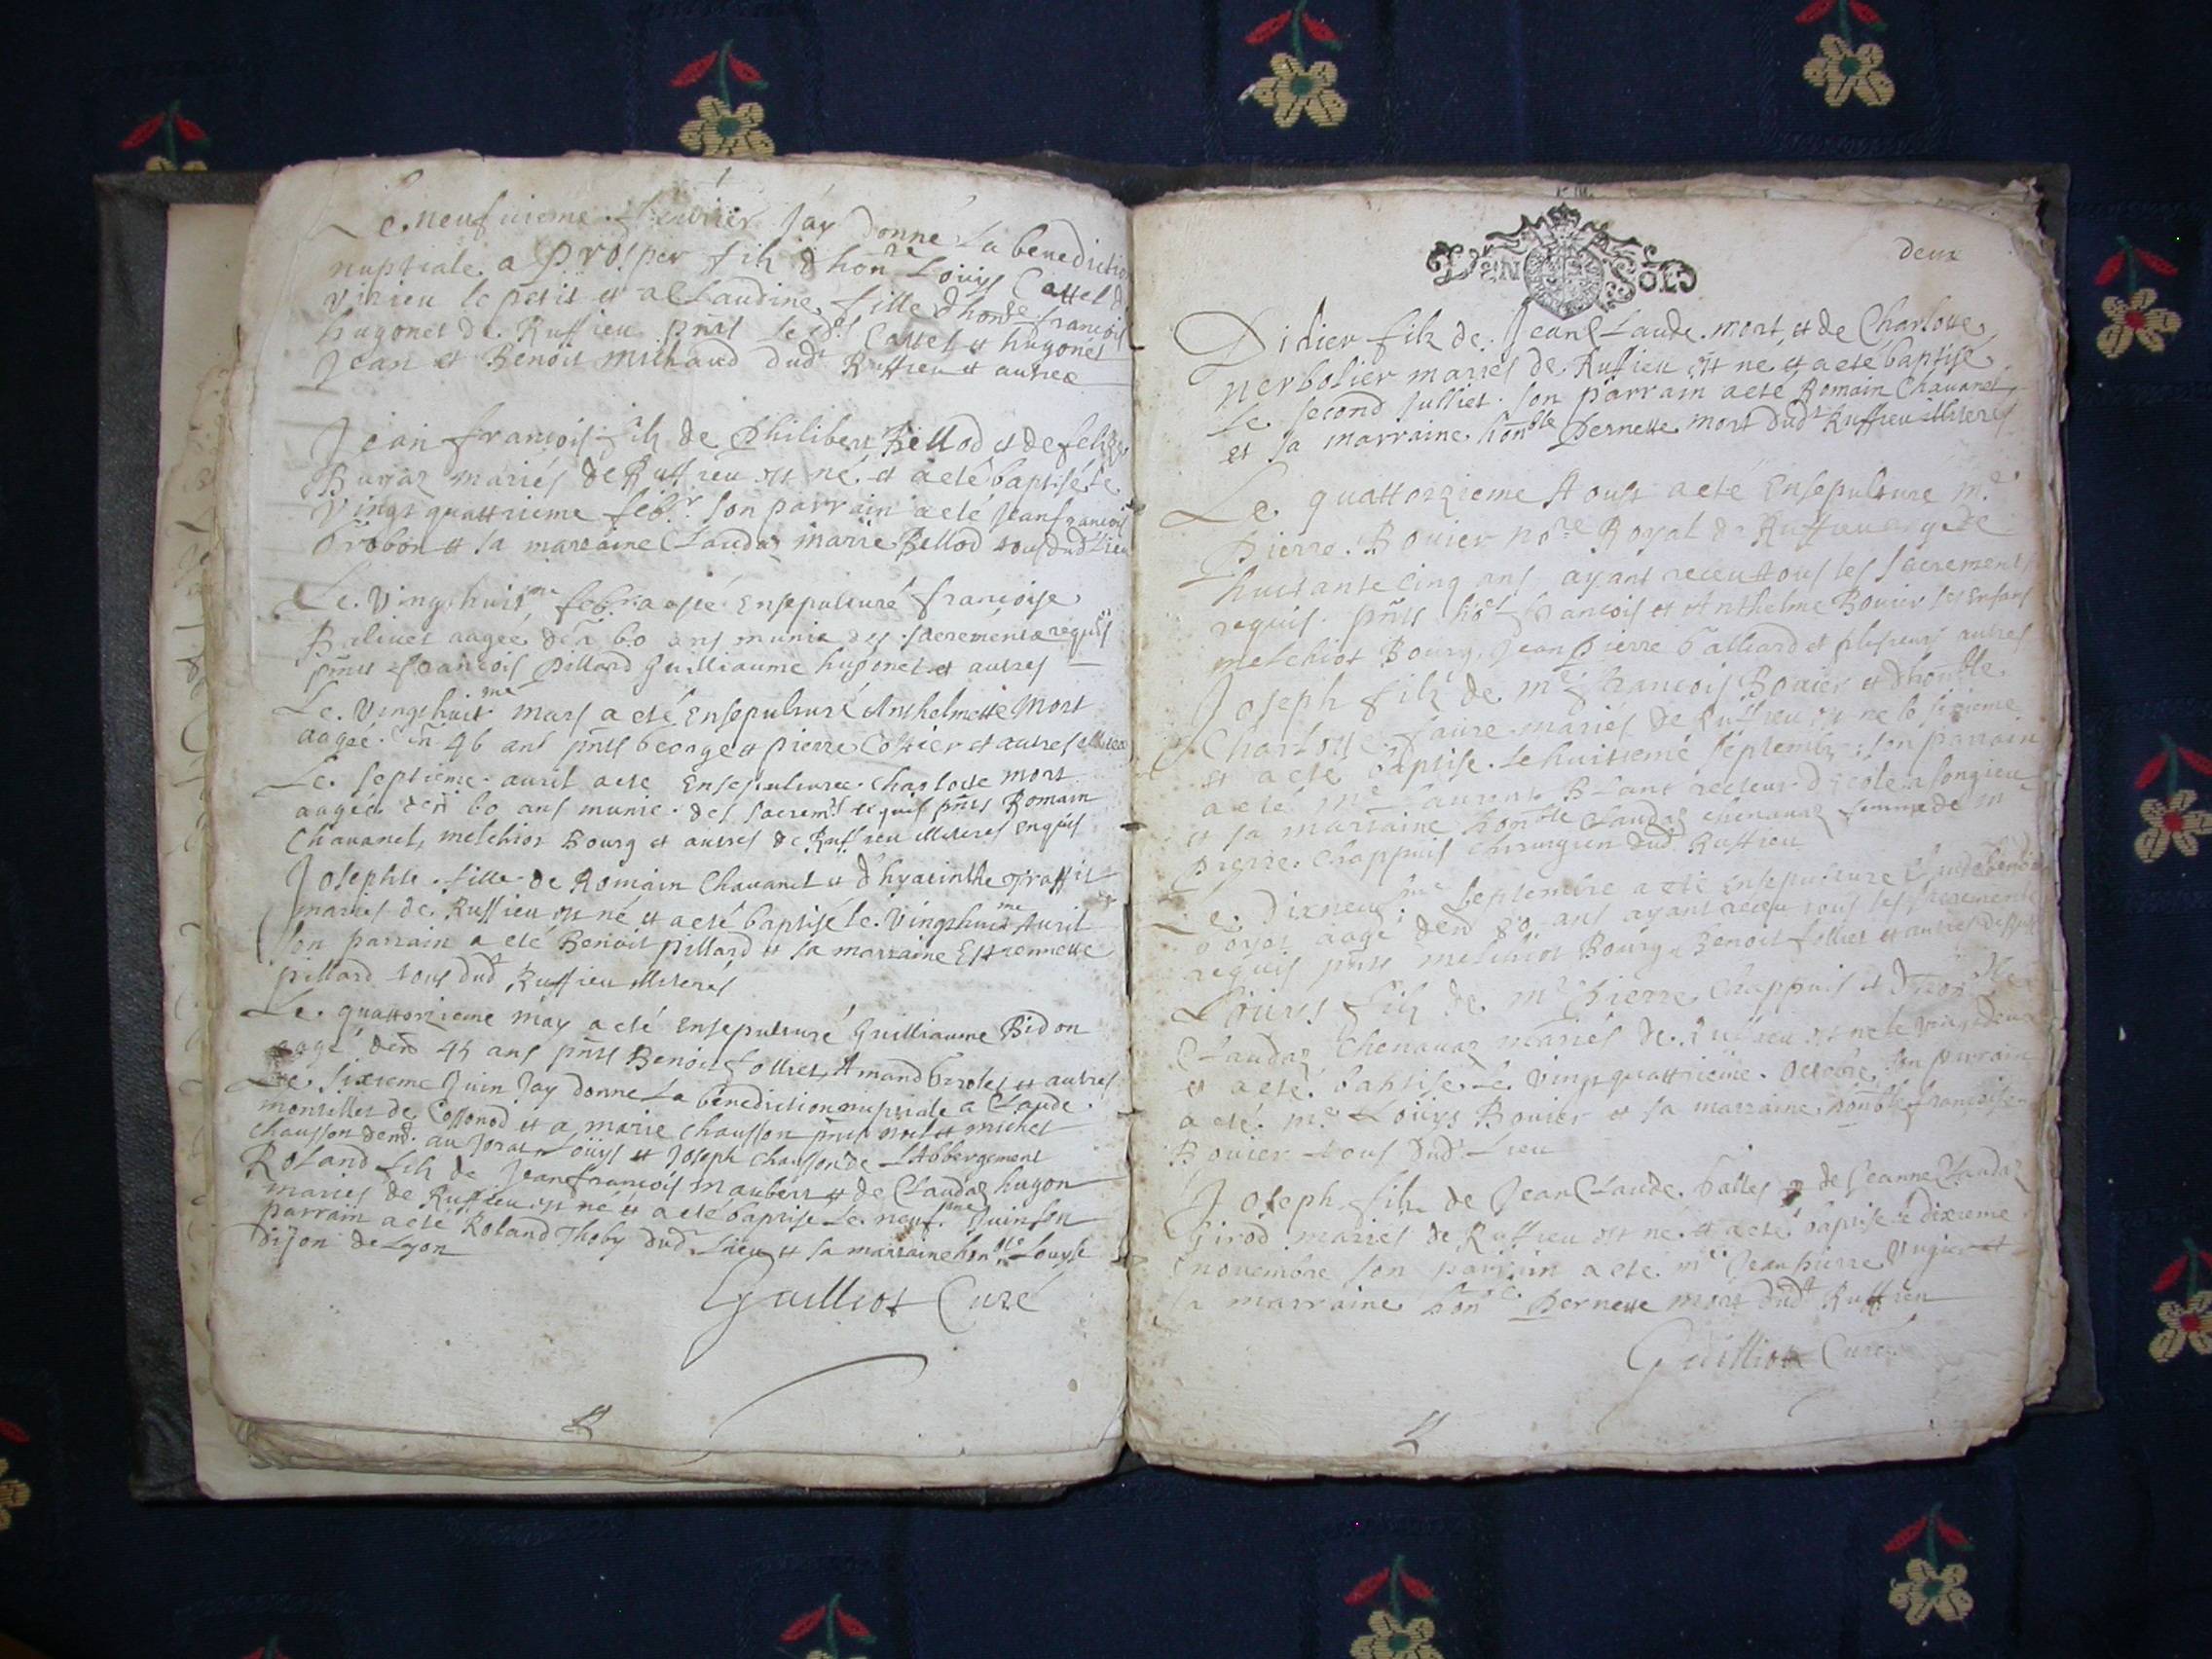 Le neufuieme feurier Jay donné La benedictio
nuptiale a prosper filz d'hon.re Loüys Cattel d
virieu le petit et a Claudine fille d'hon.de françois
hugonet de Ruffieu pñts lesd.ts Cattel et hugonet
Jean et Benoit michaud dud.t Ruffieu et autres
Jean françois filz de Philibert Bellod et de
mariés de Ruffieu est né et a eté baptisé le
Vingt quattrieme feb.r son parrain a eté Jean françois
et sa marraine Claudaz marie Bellod tous dud.t Lieu
Le Vingt huit.me feb.r a esté Ensepulturé françoise
aageé d'eñ 60 ans munie des sacrements requis
pñts françois pillard Guilliaume hugonet et autres
Le Vingt huit.me mars a eté Ensepulturé Anthelmette mort
aageé d'eñ 46 ans pñts George et pierre Costier et autres
Le septieme auril a eté Ensepulturee Charlotte mort
aageé d'eñ 60 ans munie des sacrem.ts requis pñts Romain
Chauanel, melchior Bourg et autres de Ruffieu illiterés enquis
Josephte fille de Romain Chauanel et d'hyacinthe
mariés de Ruffieu est né et a eté baptisé le Vingt huit.me Auril
son parrain a eté Benoit pillard et sa marraine Estiennette
pillard tous dud.t Ruffieu illiterés
Le quattorzieme may a eté Ensepulturé Guilliaume Bidon
aagé d'eñ 45 ans pñts Benoit folliet, Amand et autres
Le sixieme Juin Jay donne La benediction nuptiale a Claude
de Cossonod et a marie Chausson pñts et michel
Chausson Loüys et Joseph Chausson de L'Abbergement
Roland filz de Jean françois maubert et de Claudaz hugon
mariés de Ruffieu est né et a eté baptisé Le neuf.me Juin son
parrain a eté Roland Thoby dud.t Lieu et sa marraine hon.ble Louyse
dijon de Lyon
Gailliot Curé
deux
Vn Sols
Didier filz de Jean Claude mort et de Charlotte
nerbolier mariés de Ruffieu est né et a eté baptisé
Le second Julliet son parrain a eté Romain Chauanel
et sa marraine hon.ble Pernette mort dud.t Ruffieu illiterés
Le quattorzieme Aoust a eté Ensepulturé m.e
Pierre Bouier no.re Royal de Ruffieu agé de
huictante cinq ans ayant receu tous les sacrements
requis pñts françois et Anthelme Bouier ses enfans
melchior Bourg, Jean Pierre Galliard et plusieurs autres
Joseph filz de m.e françois Bouier et d'hon.ble
Charlotte faure mariés de Ruffieu est né le sixieme
et a eté baptisé le huitieme septembre son parrain
a eté m.e Laurent Blanc recteur d'école a songieu
et sa marraine hon.ble Claudaz Chenauaz femme de m.e
Pierre Chappuis chirurgien dud.t Ruffieu
Le dixneuf.me septembre a eté Ensepulturé
aagé d'eñ 80 ans ayant receu tous les sacrements
requis pñts melchior Bourg, Benoit folliet et autres
Loüys filz de m.e Pierre Chappuis et d'hon.ble
Claudaz Chenauaz mariés de Ruffieu est né le vingt deux
et a eté baptisé le vingt quattrieme octobre son parrain
a eté m.e Loüys Bouier et sa marraine hon.ble françoise
Bouier tous dud.t Lieu
Joseph filz de Jean Claude Galles et de Jeanne Claudaz
Girod mariés de Ruffieu est né et a eté baptisé le dixieme
nouembre son parrain a eté m.e Jean pierre Vugier et
sa marraine hon.e Pernette mort dud.t Ruffieu
Gailliot Curé